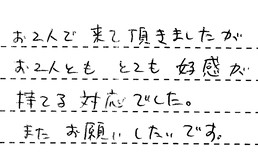 お2人で 来て頂きましたが
お2人とも とても 好感が
持てる 対応でした。
また お願いしたいです。